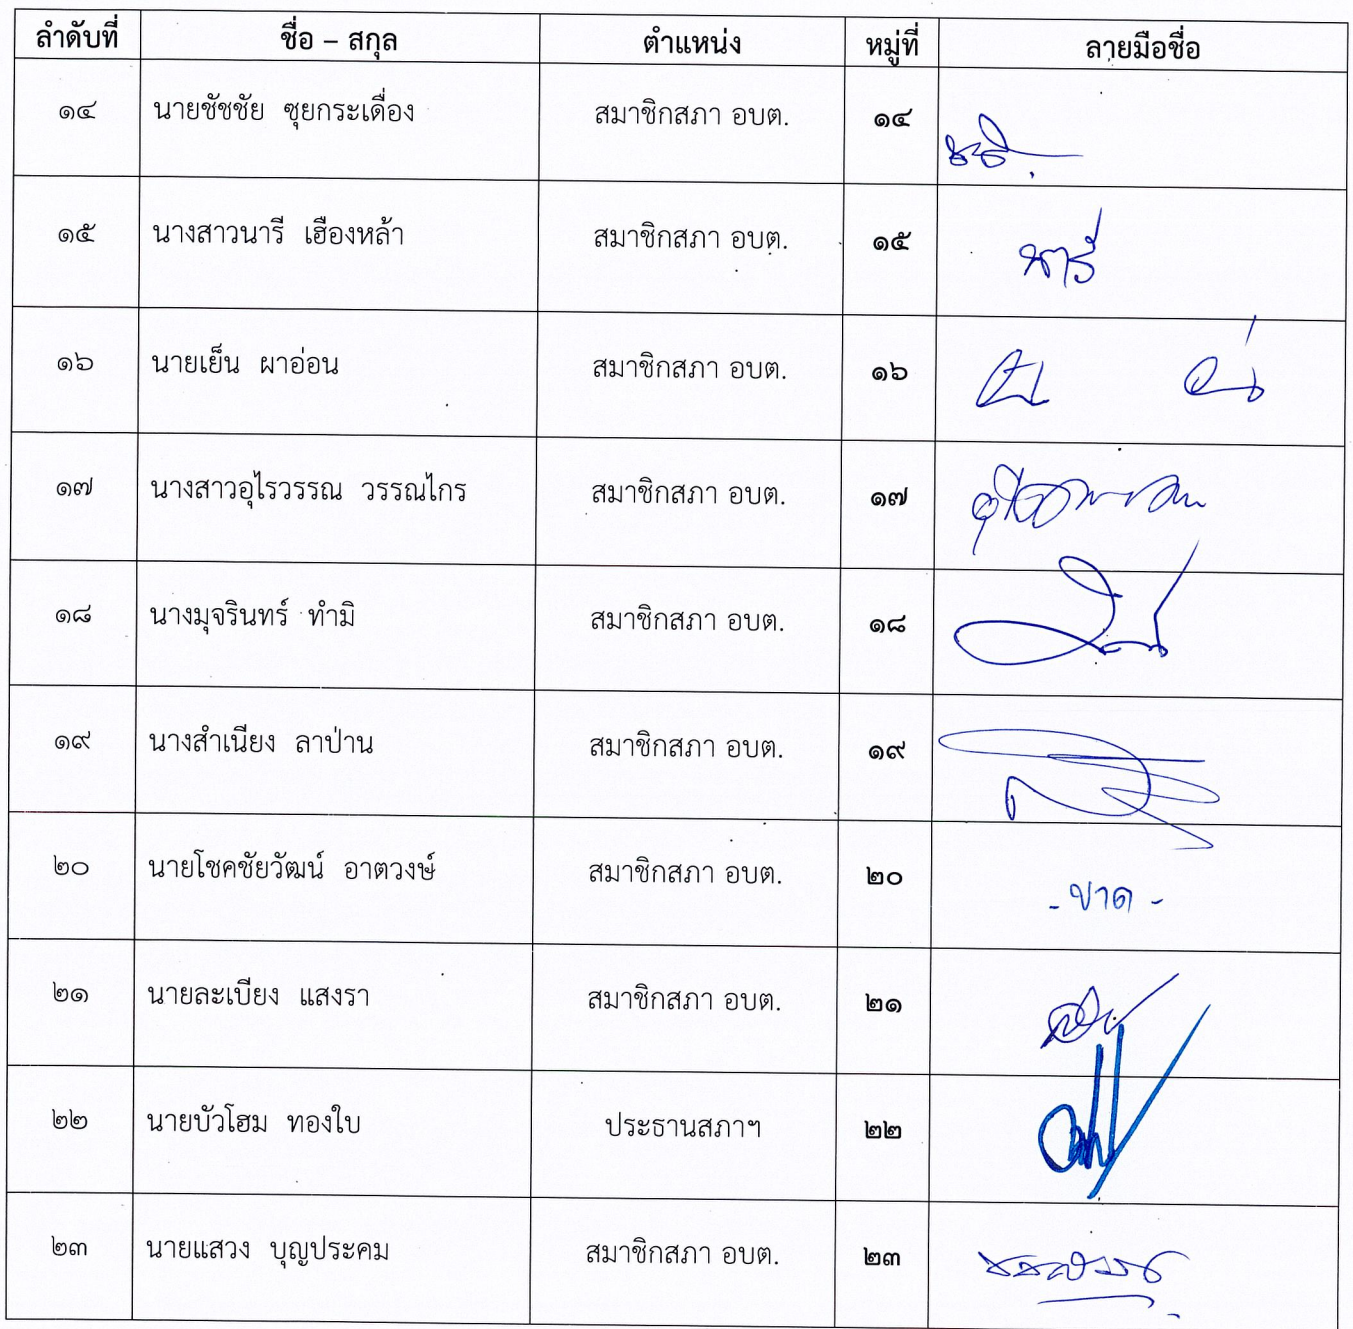 ลำดับที่ ชื่อ – สกุล ตำแหน่ง หมู่ที่ ลายมือชื่อ
๑๔ นายชัชชัย ซุยกระเดื่อง สมาชิกสภา อบต. ๑๔
๑๕ นางสาวนารี เฮืองหล้า สมาชิกสภา อบต. ๑๕ นารี
๑๖ นายเย็น ผาอ่อน สมาชิกสภา อบต. ๑๖
๑๗ นางสาวอุไรวรรณ วรรณไกร สมาชิกสภา อบต. ๑๗
๑๘ นางมุจรินทร์ ทำมิ สมาชิกสภา อบต. ๑๘
๑๙ นางสำเนียง ลาป่าน สมาชิกสภา อบต. ๑๙
๒๐ นายโชคชัยวัฒน์ อาตวงษ์ สมาชิกสภา อบต. ๒๐ - ขาด -
๒๑ นายละเบียง แสงรา สมาชิกสภา อบต. ๒๑
๒๒ นายบัวโฮม ทองใบ ประธานสภาฯ ๒๒
๒๓ นายแสวง บุญประคม สมาชิกสภา อบต. ๒๓